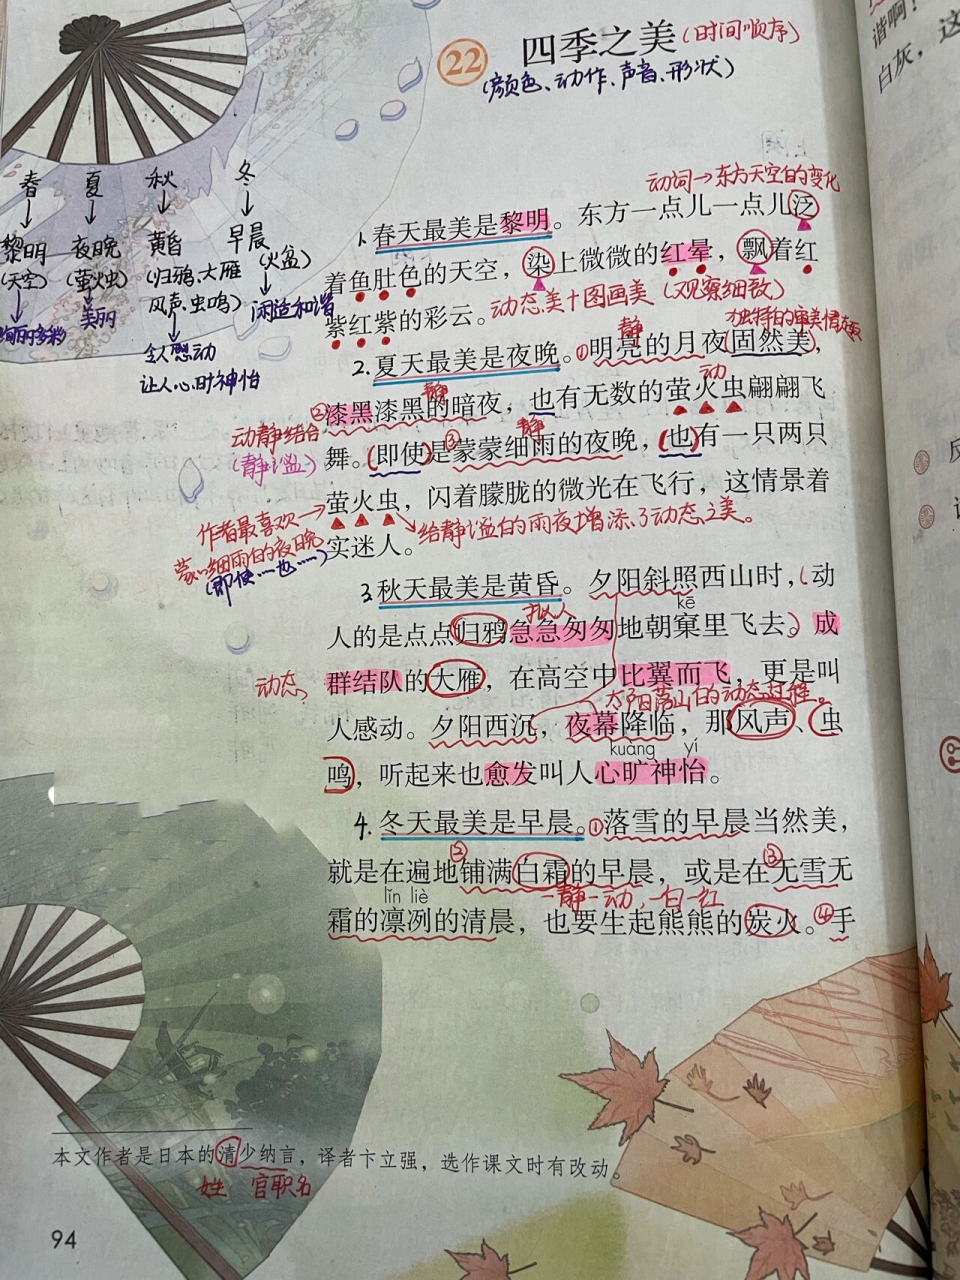 22 四季之美(时间顺序)
(颜色、动作、声音、形状)
春 夏 秋 冬
黎明 夜晚 黄昏 早晨
(天空) (萤火虫) (归鸦、大雁 (火盆)
风声、虫鸣) 闲适和谐
美丽
令人感动
让人心旷神怡
动词→东方天空的变化
1.春天最美是黎明。东方一点儿一点儿泛
着鱼肚色的天空，染上微微的红晕，飘着红
紫红紫的彩云。动态美+图画美(观察细致)
静 独特的审美情趣
2.夏天最美是夜晚。①明亮的月夜固然美，
静 动
②漆黑漆黑的暗夜，也有无数的萤火虫翩翩飞
动静结合
(静谧)
静
舞。(即使)是③蒙蒙细雨的夜晚，(也)有一只两只
萤火虫，闪着朦胧的微光在飞行，这情景着
作者最喜欢→
蒙蒙细雨的夜晚
(即使……也……)
给静谧的雨夜增添了动态之美。
实迷人。
3.秋天最美是黄昏。夕阳斜照西山时，(动
拟人 kē
人的是点点归鸦急急匆匆地朝窠里飞去。)成
动态
群结队的大雁，在高空中比翼而飞，更是叫
太阳落山的动态过程。
人感动。夕阳西沉，夜幕降临，那风声、虫
kuàng yí
鸣，听起来也愈发叫人心旷神怡。
4.冬天最美是早晨。①落雪的早晨当然美，
就是在遍地②铺满白霜的早晨，或是在③无雪无
lǐn liè 一静一动，一白一红
霜的凛冽的清晨，也要生起熊熊的炭火。④手
本文作者是日本的清少纳言，译者卞立强，选作课文时有改动。
姓 官职名
94
谐啊！
白灰，这